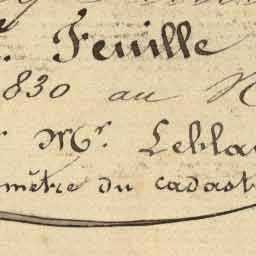 Feuille
1830 au
Mr. Lebla
mètre du cadast